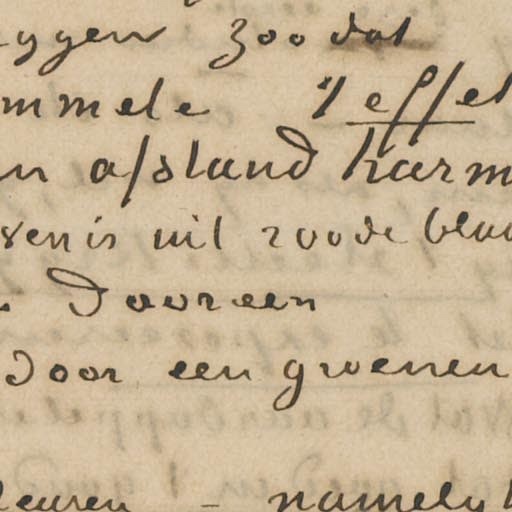 eggen zoodat
mmele 't effet
n afstand harm
ven is uit roode blau
dooreen
door een groenen
leuren – namelyk